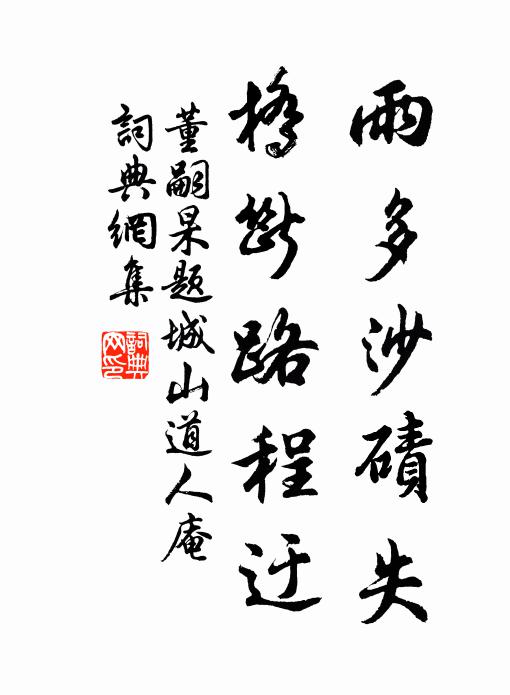 雨多沙磧失
橋斷路程迂
董嗣杲題城山道人庵
詞典網集
詞典
網印